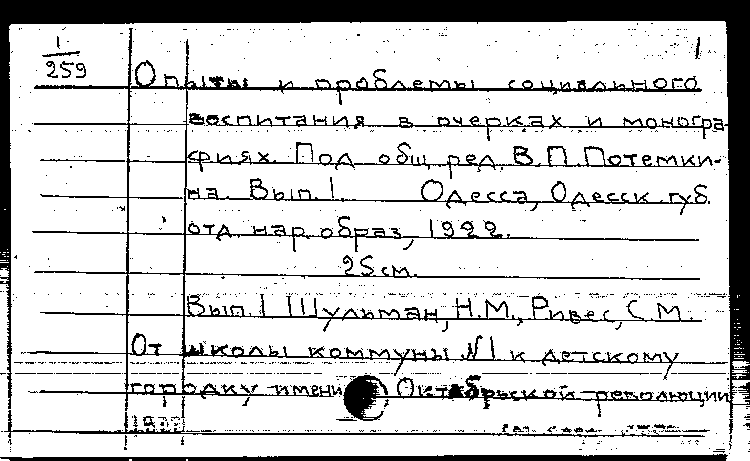 1
259
1
Опыты и проблемы социального
воспитания в очерках и моногра-
фиях. Под общ. ред. В.П. Потемки-
на. Вып. 1. Одесса, Одесск. губ.
отд. нар. образ, 1922.
25 см.
Вып. 1 Шульман, Н.М., Ривес, С.М.
От школы коммуны №1 к детскому
городку имени Октябрьской революции